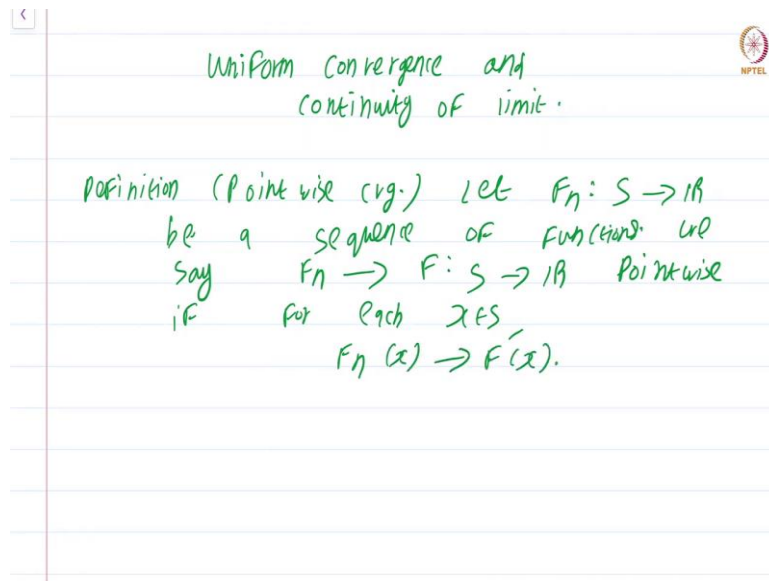 Uniform convergence and
continuity of limit.
NPTEL
Definition (Pointwise cvg.) Let Fn : S → ℝ
be a sequence of functions. We
say Fn → F : S → ℝ Pointwise
if for each x∈S
Fn (x) → F(x).